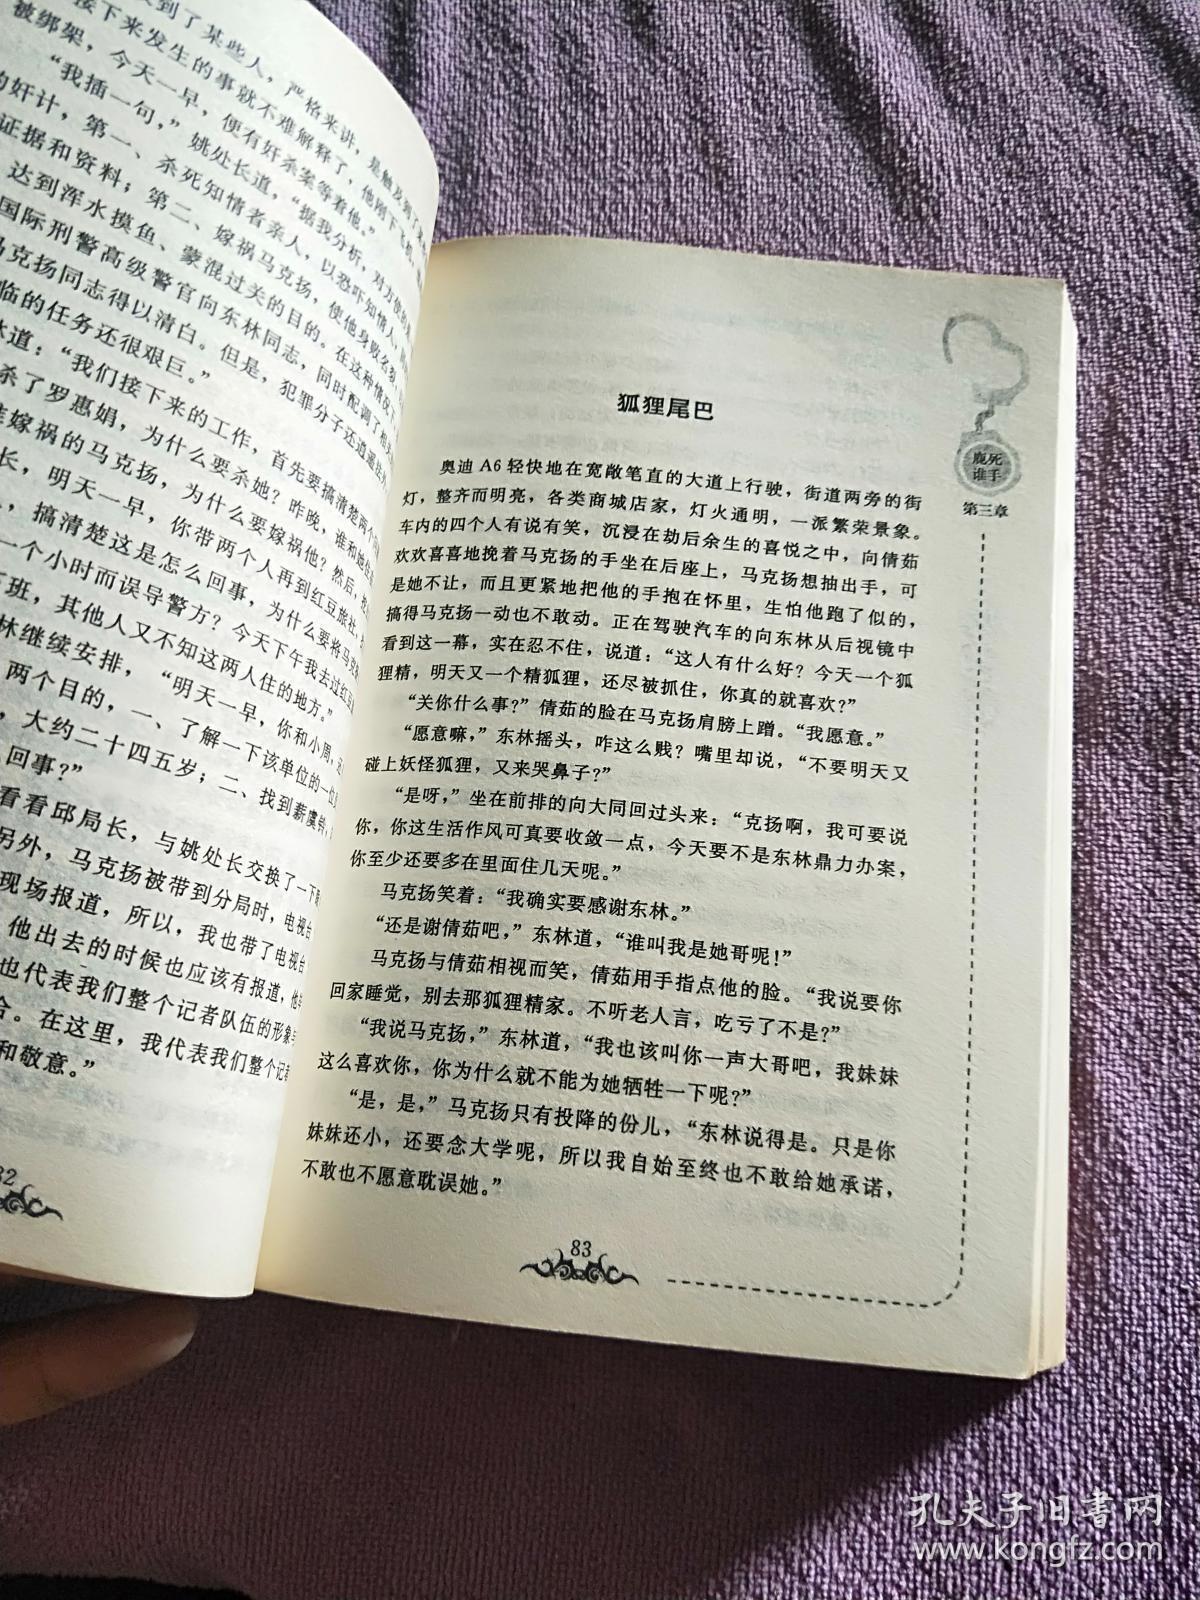 到了某些人，严格来讲，是触及到了
接下来发生的事就不难解释了，他刚下飞机，
被绑架，今天一早，便有奸杀案等着他。”
“我插一句，”姚处长道，“据我分析，对方使的是
的奸计，第一、杀死知情者亲人，以恐吓知情人，
证据和资料；第二、嫁祸马克扬，使他身败名裂，
达到浑水摸鱼、蒙混过关的目的。在这种情况下，
国际刑警高级警官向东林同志，同时配调了
马克扬同志得以清白。但是，犯罪分子还逍遥法外，
临的任务还很艰巨。”
林道：“我们接下来的工作，首先要搞清楚两个
杀了罗惠娟，为什么要杀她？昨晚，谁和她住
嫁祸的马克扬，为什么要嫁祸他？然后，
长，明天一早，你带两个人再到红豆旅社，
，搞清楚这是怎么回事，为什么要将马克
一个小时而误导警方？今天下午我去过红豆
班，其他人又不知这两人住的地方。”
林继续安排，“明天一早，你和小周，
两个目的，一、了解一下该单位的一位
，大约二十四五岁；二、找到薪虞钟，
回事？”
看看邱局长，与姚处长交换了一下
另外，马克扬被带到分局时，电视台
现场报道，所以，我也带了电视台
他出去的时候也应该有报道，他
也代表我们整个记者队伍的形象
。在这里，我代表我们整个记者
和敬意。”
82
狐狸尾巴
鹿死
谁手
第三章
奥迪 A6 轻快地在宽敞笔直的大道上行驶，街道两旁的街
灯，整齐而明亮，各类商城店家，灯火通明，一派繁荣景象。
车内的四个人有说有笑，沉浸在劫后余生的喜悦之中，向倩茹
欢欢喜喜地挽着马克扬的手坐在后座上，马克扬想抽出手，可
是她不让，而且更紧地把他的手抱在怀里，生怕他跑了似的，
搞得马克扬一动也不敢动。正在驾驶汽车的向东林从后视镜中
看到这一幕，实在忍不住，说道：“这人有什么好？今天一个狐
狸精，明天又一个精狐狸，还尽被抓住，你真的就喜欢？”
“关你什么事？”倩茹的脸在马克扬肩膀上蹭。“我愿意。”
“愿意嘛，”东林摇头，咋这么贱？嘴里却说，“不要明天又
碰上妖怪狐狸，又来哭鼻子？”
“是呀，”坐在前排的向大同回过头来：“克扬啊，我可要说
你，你这生活作风可真要收敛一点，今天要不是东林鼎力办案，
你至少还要多在里面住几天呢。”
马克扬笑着：“我确实要感谢东林。”
“还是谢倩茹吧，”东林道，“谁叫我是她哥呢！”
马克扬与倩茹相视而笑，倩茹用手指点他的脸。“我说要你
回家睡觉，别去那狐狸精家。不听老人言，吃亏了不是？”
“我说马克扬，”东林道，“我也该叫你一声大哥吧，我妹妹
这么喜欢你，你为什么就不能为她牺牲一下呢？”
“是，是，”马克扬只有投降的份儿，“东林说得是。只是你
妹妹还小，还要念大学呢，所以我自始至终也不敢给她承诺，
不敢也不愿意耽误她。”
83
孔夫子旧书网
www.kongfz.com